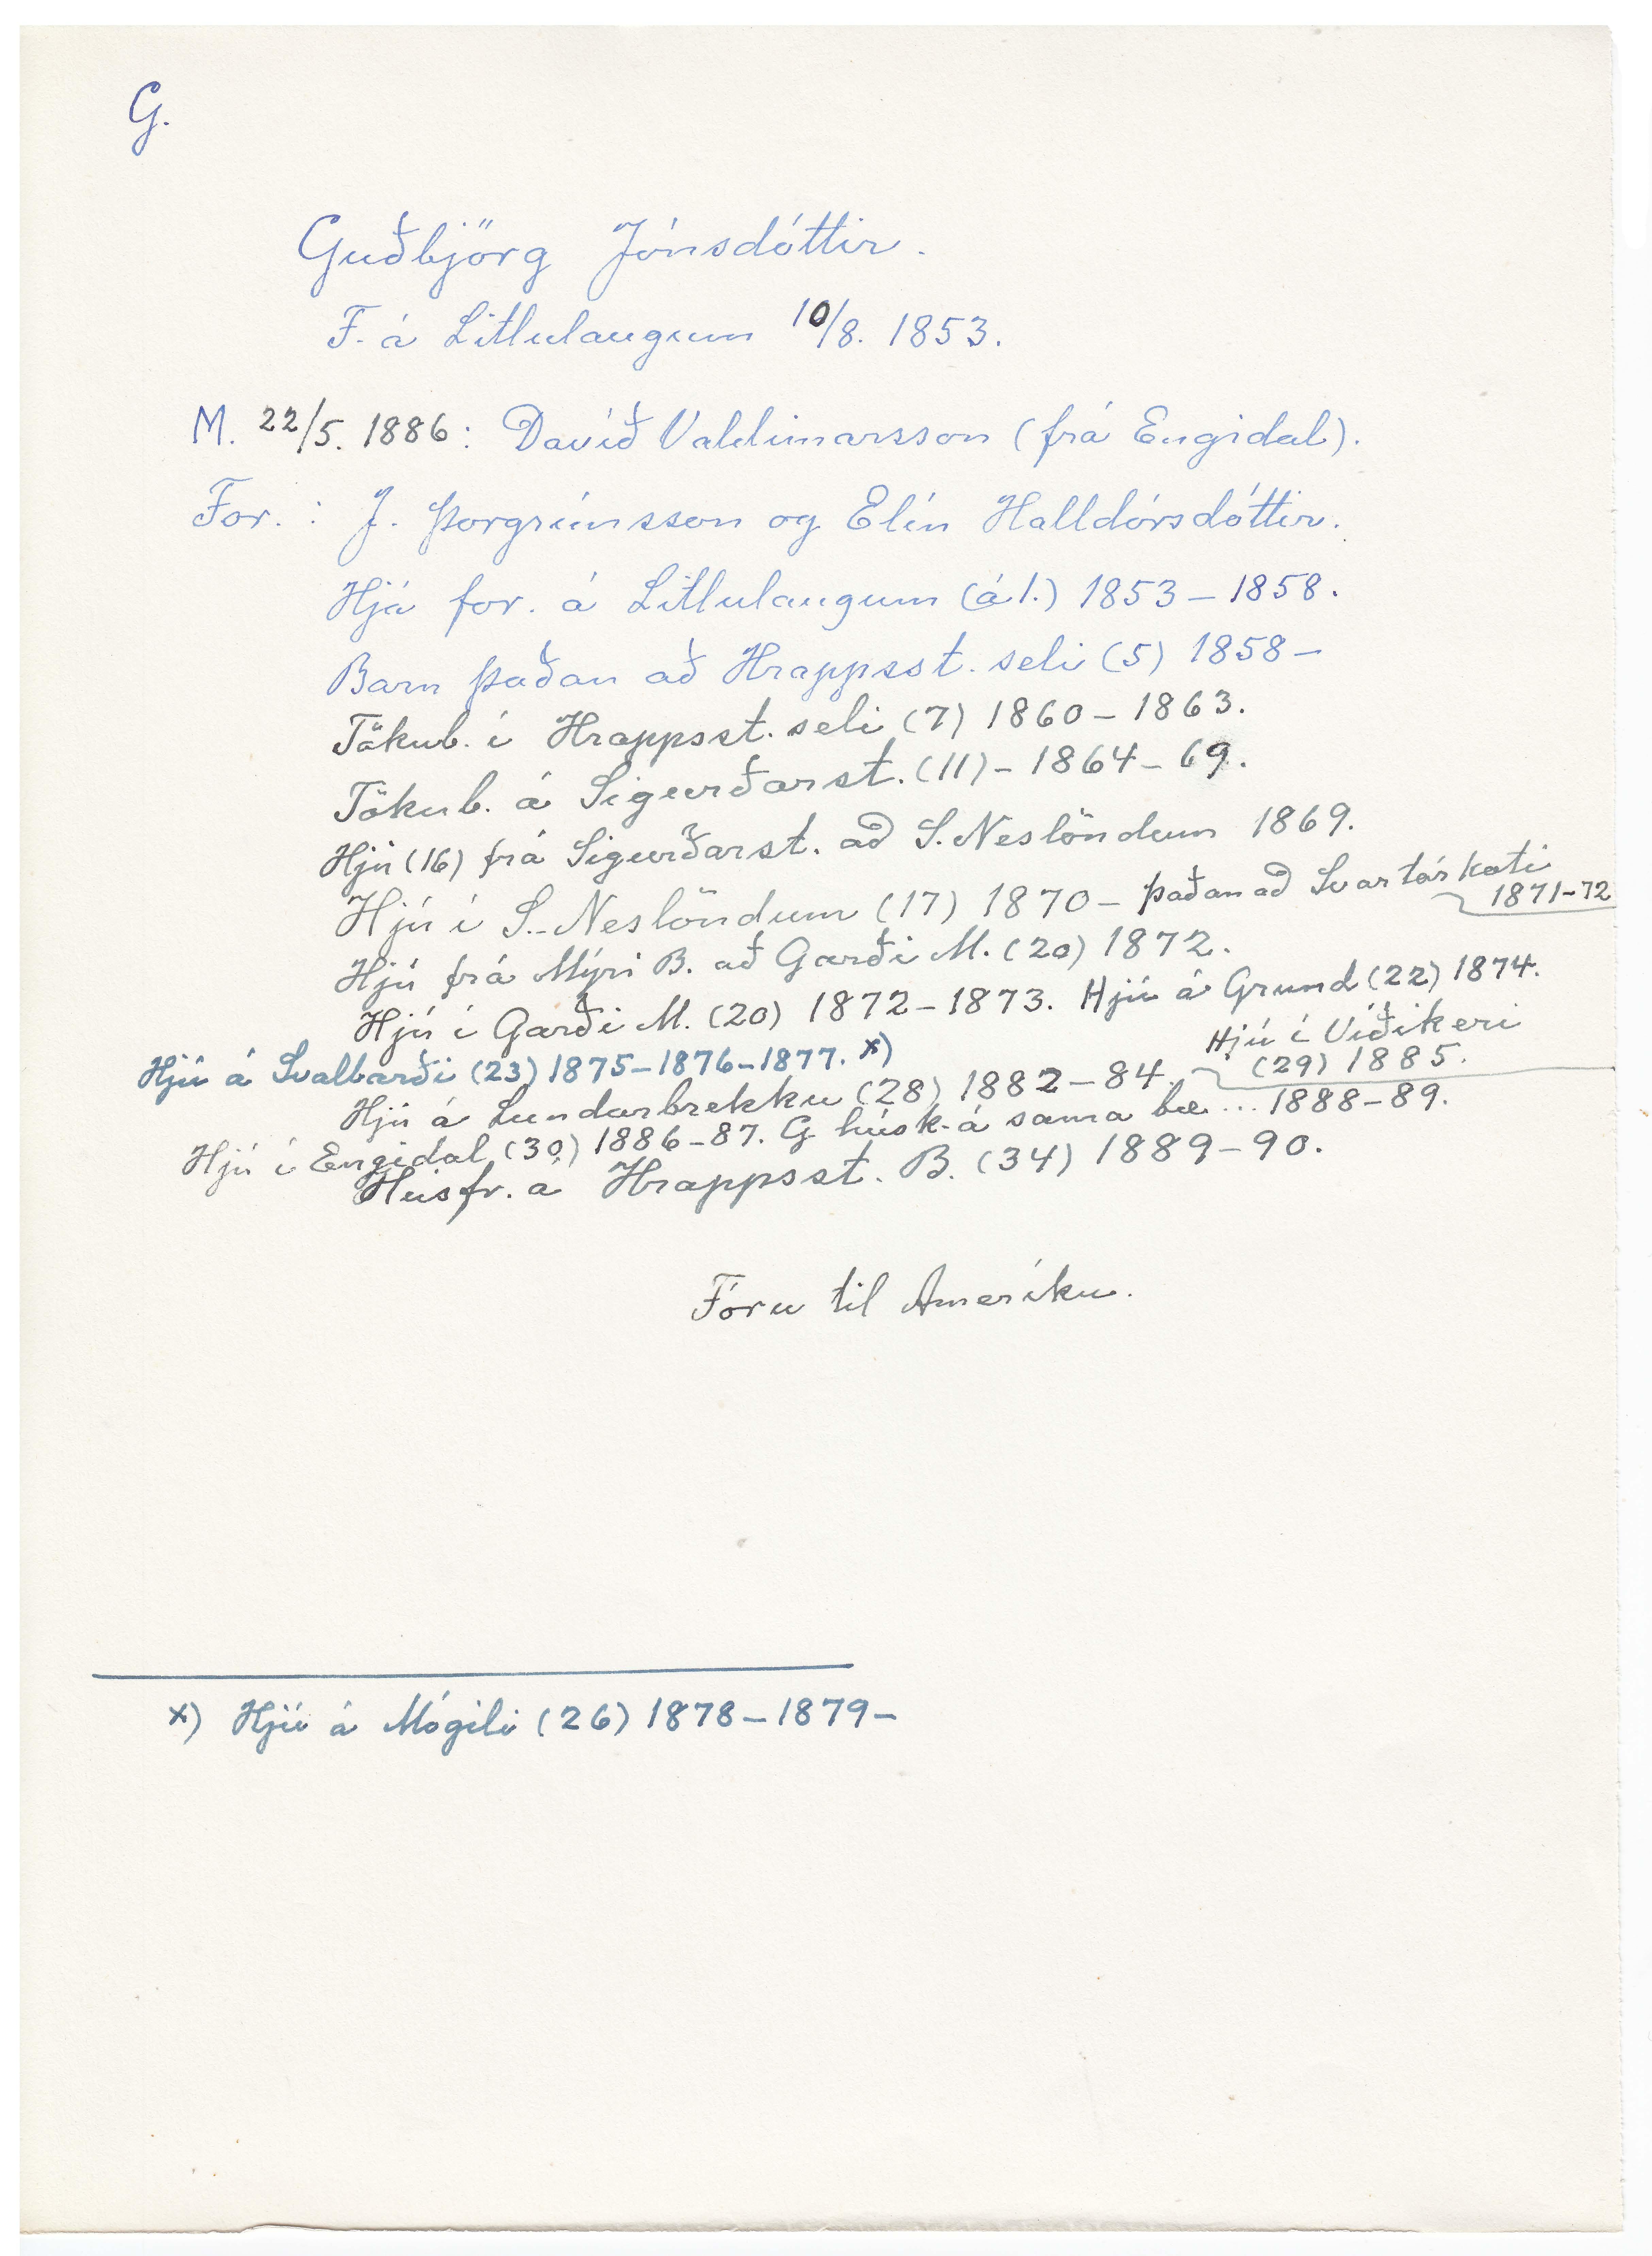 G.
Guðbjörg Jónsdóttir.
F. á Litlulaugum 10/8. 1853.
M. 22/5. 1886: Davíð Valdimarsson (frá Engidal).
For. : J. Þorgrímsson og Elín Halldórsdóttir.
Hjá for. á Litlulaugum (á 1.) 1853 – 1858.
Barn þaðan að Hrappsst. seli (5) 1858 –
Tökub. í Hrappsst. seli (7) 1860 – 1863.
Tökub. á Sigurðarst. (11) – 1864 – 69.
Hjú (16) frá Sigurðarst. að S. Neslöndum 1869.
Hjú í S.-Neslöndum (17) 1870 – þaðan að Svartárkoti
1871-72
Hjú frá Mýri B. að Garði M. (20) 1872.
Hjú í Garði M. (20) 1872 – 1873. Hjú á Grund (22) 1874.
Hjú á Svalbarði (23) 1875 – 1876 – 1877. x)
Hjú á Lundarbrekku (28) 1882 – 84.
Hjú í Víðikeri
(29) 1885.
Hjú í Engidal (30) 1886 – 87. G. húsk. á sama bæ ... 1888 – 89.
Húsfr. á Hrappsst. B. (34) 1889 – 90.
Fóru til Ameríku.
x) Hjú á Mógili (26) 1878 – 1879 –